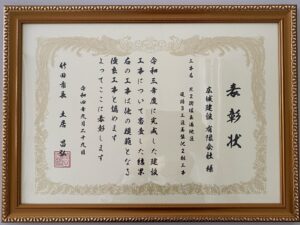 表彰状
広域建設 有限会社 様
工事名
令和三年度に完成した建設
工事について審査した結果
右の工事は他の模範となる
優良工事と認めます
よってここに表彰します
令和四年九月二十九日
竹田市長 土居 昌弘